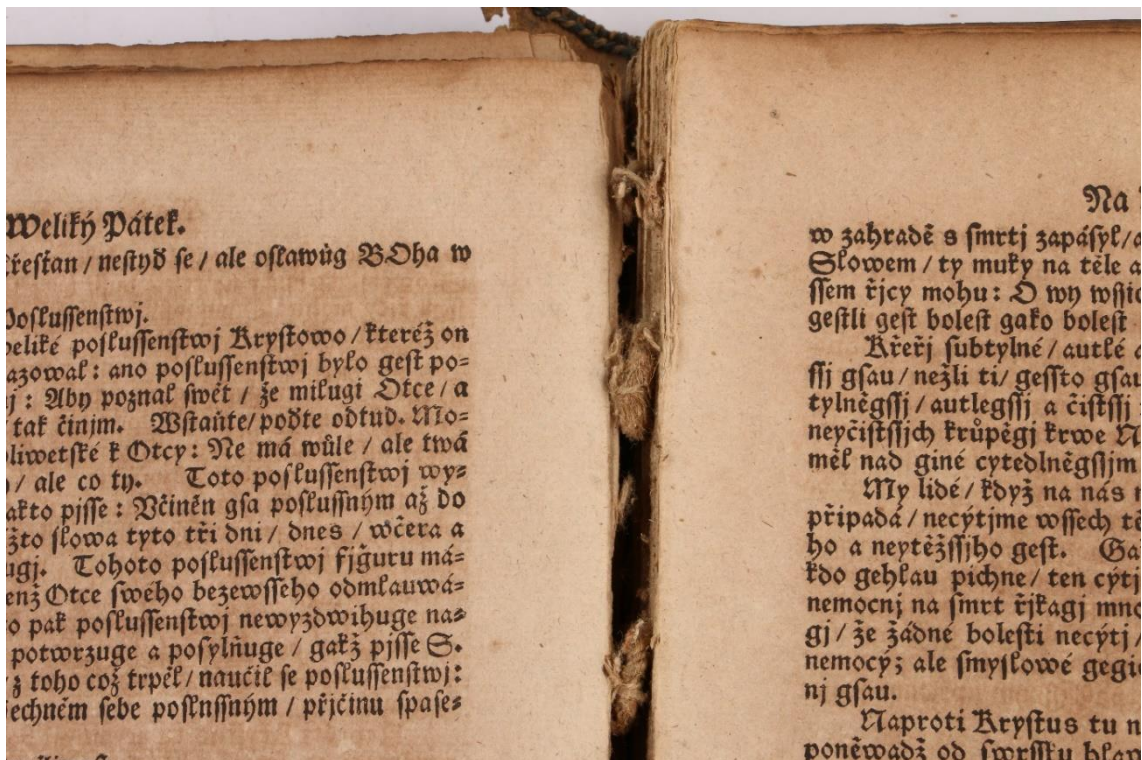 Weliký Pátek.
křesťan / nestyď se / ale oslawůg BOha w
Poslussenstwj.
weliké poslussenstwj Krystowo / kteréž on
azowal : ano poslussenstwj bylo gest po=
j : Aby poznal swět / že milugi Otce / a
/ tak činjm. Wstaňte / poďte odtud. Mo=
dliwetské k Otcy : Ne má wůle / ale twá
/ ale co ty. Toto poslussenstwj wy=
akto pjsse : Včiněn gsa poslussným až do
žto slowa tyto tři dni / dnes / wčera a
ugj. Tohoto poslussenstwj fjguru má=
enž Otce swého bezewsseho odmlauwá=
o pak poslussenstwj newyzdwihuge na=
potwrzuge a posylňuge / gakž pjsse S.
/ z toho což trpěl / naučil se poslussenstwj :
ssechněm sebe poslnssným / přjčinu spase=
Na
w zahradě s smrtj zapásyl / a
Slowem / ty muky na těle a
ssem řjcy mohu : O wy wssic
gestli gest bolest gako bolest
Křeřj subtylné / autlé a
ssj gsau / nežli ti / gessto gsau
tylněgssj / autlegssj a čistssj
neyčistssjch krůpěgj krwe N
měl nad giné cytedlněgssjm
My lidé / když na nás n
připadá / necýtjme wssech tě
ho a neytěžssjho gest. Ga
kdo gehlau pichne / ten cýtj
nemocnj na smrt řjkagj mno
gj / že žádné bolesti necýtj /
nemocy ; ale smyslowé gegic
nj gsau.
Naproti Krystus tu n
poněwadž od swrssku hlaw